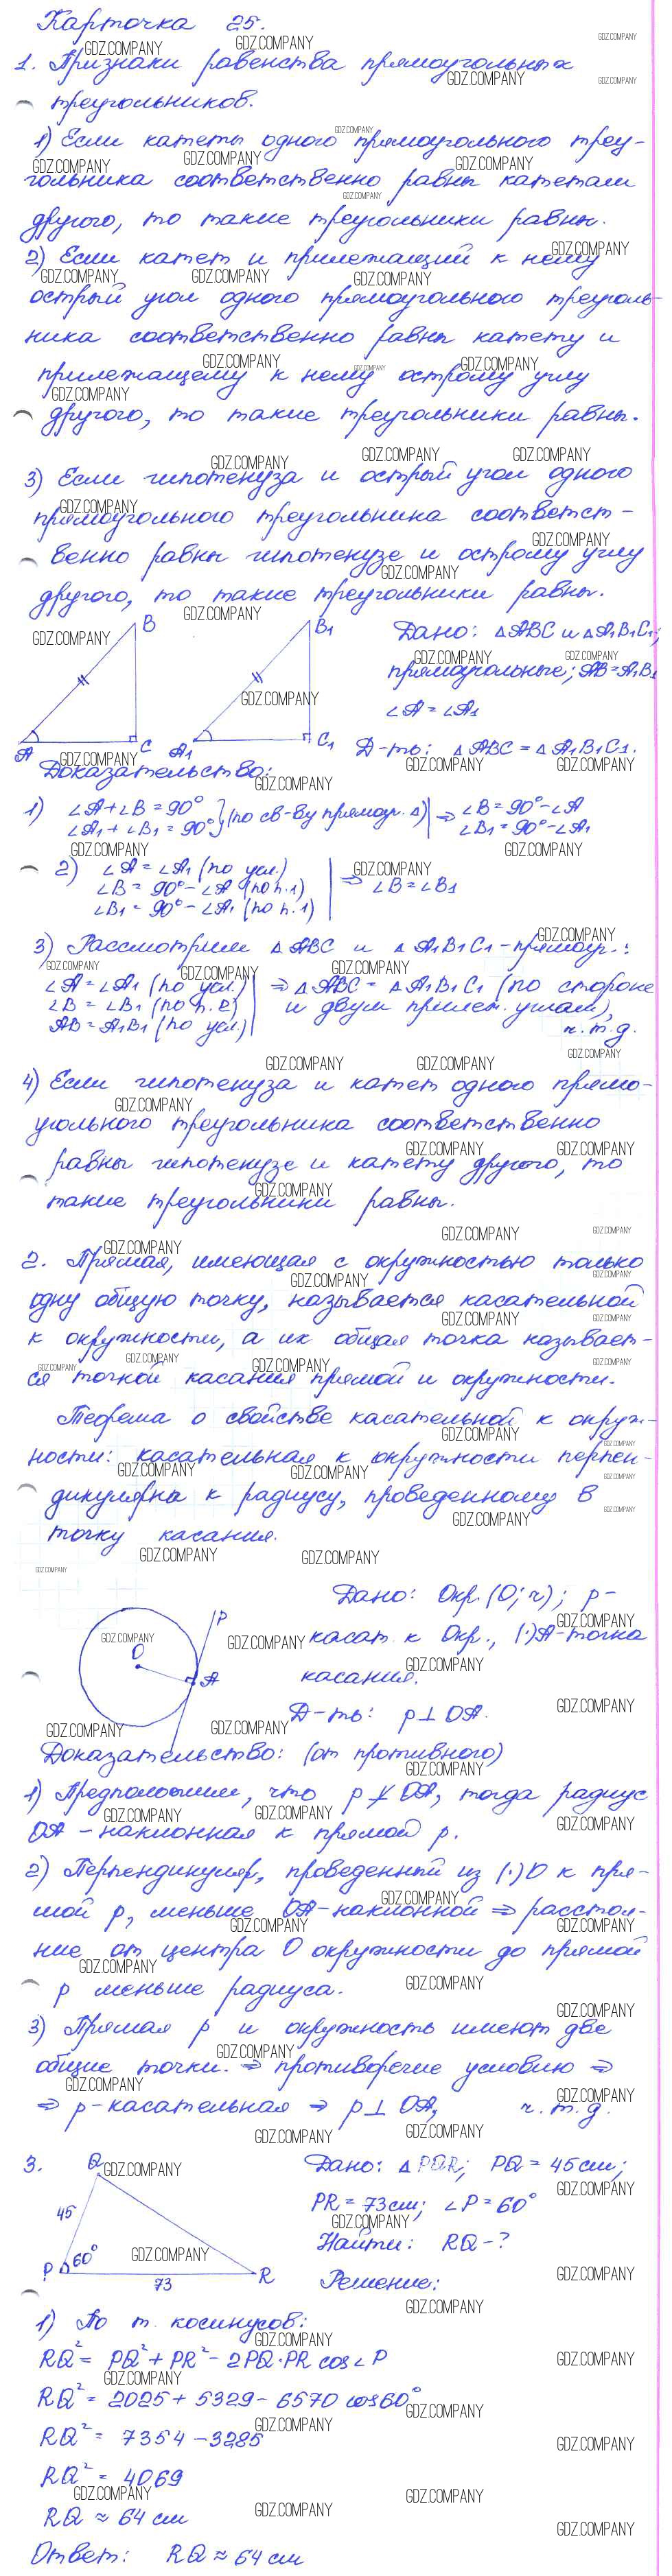 Карточка 25.
1. Признаки равенства прямоугольных
треугольников.
1) Если катеты одного прямоугольного треу-
гольника соответственно равны катетам
другого, то такие треугольники равны.
2) Если катет и прилежащий к нему
острый угол одного прямоугольного треуголь-
ника соответственно равны катету и
прилежащему к нему острому углу
другого, то такие треугольники равны.
3) Если гипотенуза и острый угол одного
прямоугольного треугольника соответст-
венно равны гипотенузе и острому углу
другого, то такие треугольники равны.
B B₁ Дано: ΔABC и ΔA₁B₁C₁;
прямоугольные; AB=A₁B₁
∠A = ∠A₁
A C A₁ C₁ Д-ть: ΔABC = ΔA₁B₁C₁.
Доказательство:
1) ∠A+∠B = 90° } (по св-ву прямоуг. Δ) | ⇒ ∠B = 90°-∠A
∠A₁+∠B₁ = 90° ∠B₁ = 90°-∠A₁
2) ∠A = ∠A₁ (по усл.)
∠B = 90°-∠A (по п.1) | ⇒ ∠B = ∠B₁
∠B₁ = 90°-∠A₁ (по п.1)
3) Рассмотрим ΔABC и ΔA₁B₁C₁-прямоуг.:
∠A = ∠A₁ (по усл.) | ⇒ ΔABC = ΔA₁B₁C₁ (по стороне
∠B = ∠B₁ (по п.2) и двум прилеж. углам),
AB = A₁B₁ (по усл.) ч.т.д.
4) Если гипотенуза и катет одного прямо-
угольного треугольника соответственно
равны гипотенузе и катету другого, то
такие треугольники равны.
2. Прямая, имеющая с окружностью только
одну общую точку, называется касательной
к окружности, а их общая точка называет-
ся точкой касания прямой и окружности.
Теорема о свойстве касательной к окруж-
ности: касательная к окружности перпен-
дикулярна к радиусу, проведенному в
точку касания.
Дано: Окр. (O; r); p-
касат. к Окр., (·)A-точка
касания.
O p A
Д-ть: p⊥OA.
Доказательство: (от противного)
1) Предположим, что p⊥̸OA, тогда радиус
OA - наклонная к прямой p.
2) Перпендикуляр, проведенный из (·)O к пря-
мой p, меньше OA-наклонной ⇒ расстоя-
ние от центра O окружности до прямой
p меньше радиуса.
3) Прямая p и окружность имеют две
общие точки. ⇒ противоречие условию ⇒
⇒ p-касательная ⇒ p⊥OA, ч.т.д.
3. Q Дано: ΔPQR; PQ = 45 см;
45 PR = 73 см; ∠P = 60°
Найти: RQ-?
P 60° 73 R Решение:
1) По т. косинусов:
RQ² = PQ² + PR² - 2PQ·PR cos∠P
RQ² = 2025 + 5329 - 6570 cos60°
RQ² = 7354 - 3285
RQ² = 4069
RQ ≈ 64 см
Ответ: RQ ≈ 64 см
GDZ.COMPANY